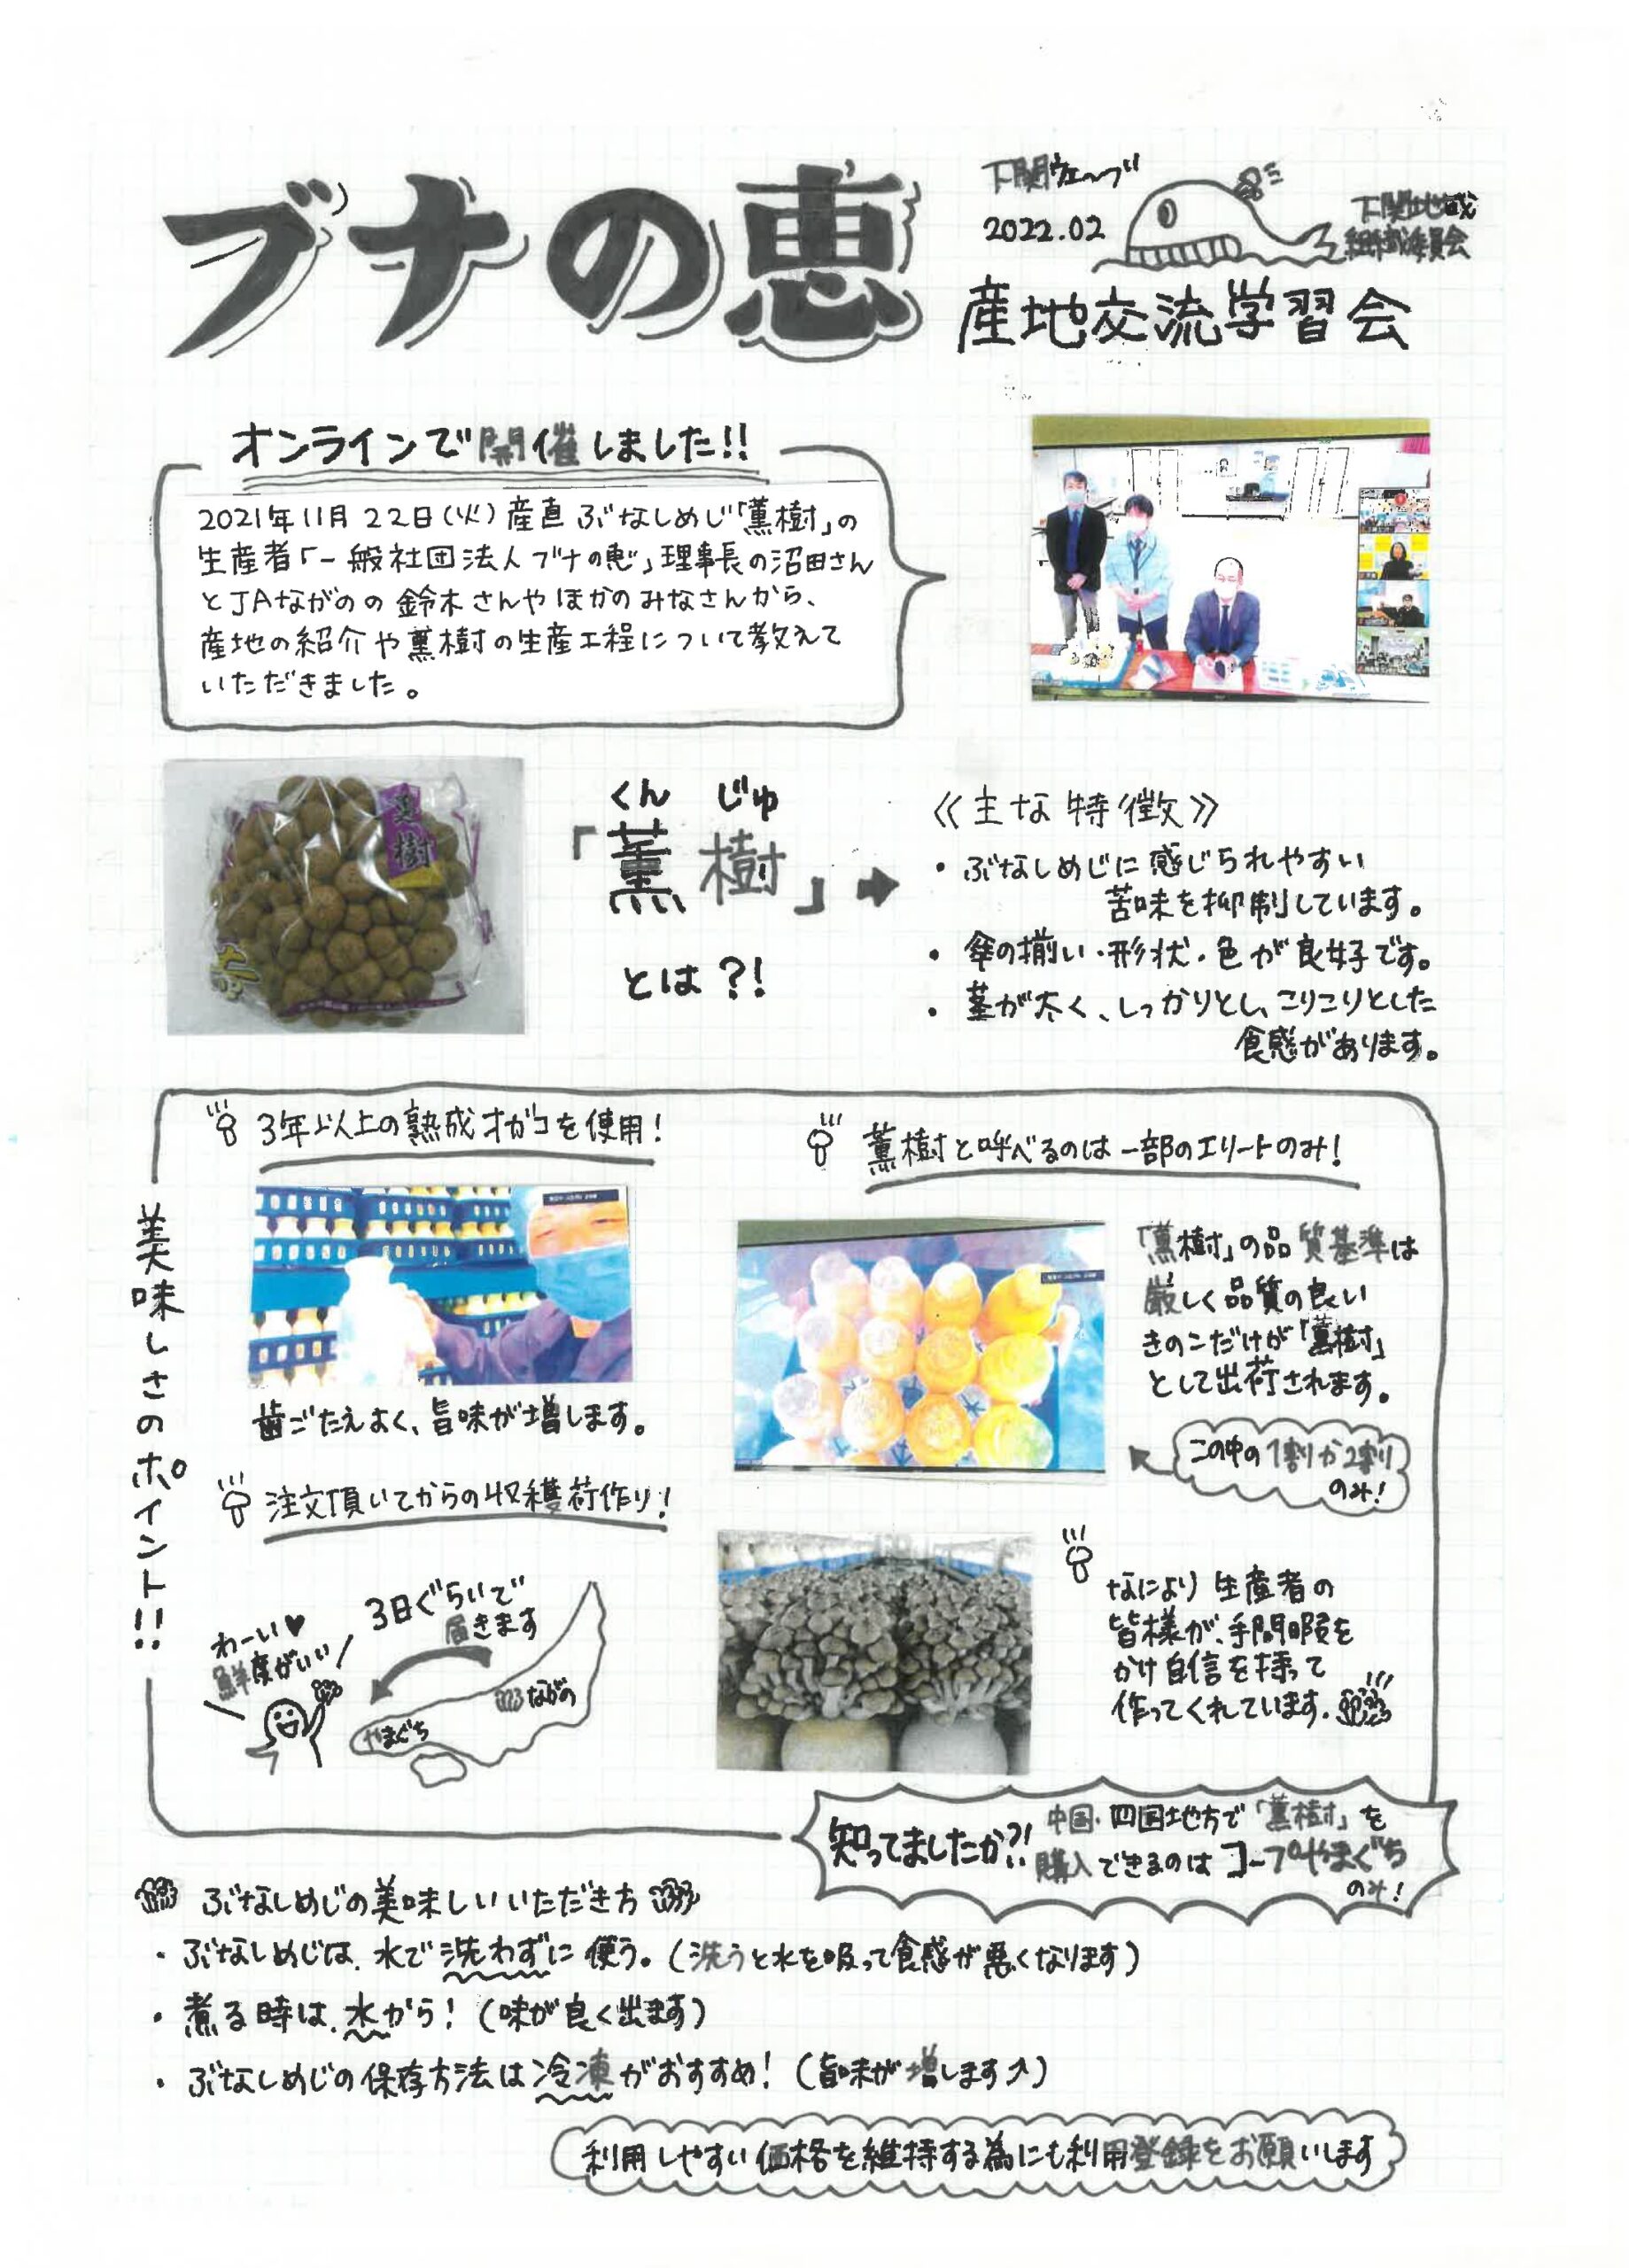 ブナの恵
下関ウェ〜ブ
2022.02
下関地域
組織委員会
産地交流学習会
オンラインで開催しました!!
2021年11月22日(火)産直ぶなしめじ「薫樹」の
生産者「一般社団法人ブナの恵」理事長の沼田さん
とJAながのの鈴木さんやほかのみなさんから、
産地の紹介や薫樹の生産工程について教えて
いただきました。
薫樹
くん じゅ
「薫樹」
とは?!
《主な特徴》
・ぶなしめじに感じられやすい
苦味を抑制しています。
・傘の揃い・形状・色が良好です。
・茎が太く、しっかりとし、こりこりとした
食感があります。
美味しさのポイント!!
3年以上の熟成オガコを使用!
歯ごたえよく、旨味が増します。
薫樹と呼べるのは一部のエリートのみ!
「薫樹」の品質基準は
厳しく品質の良い
きのこだけが「薫樹」
として出荷されます。
この中の1割か2割
のみ!
注文頂いてからの収穫荷作り!
3日ぐらいで
届きます
わーい♥
鮮度がいい!
ながの
やまぐち
なにより生産者の
皆様が、手間暇を
かけ自信を持って
作ってくれています。
知ってましたか?!
中国・四国地方で「薫樹」を
購入できるのはコープやまぐち
のみ!
ぶなしめじの美味しいいただき方
・ぶなしめじは、水で洗わずに使う。(洗うと水を吸って食感が悪くなります)
・煮る時は、水から!(味が良く出ます)
・ぶなしめじの保存方法は冷凍がおすすめ!(旨味が増します↗)
利用しやすい価格を維持する為にも利用登録をお願いします